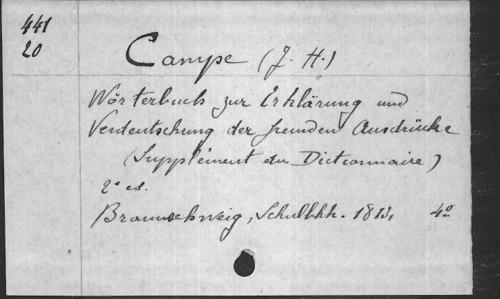 441
20
Campe (J. H.)
Wörterbuch zur Erklärung und
Verdeutschung der fremden Ausdrücke
(Supplément du Dictionnaire)
2e ed.
Braunschweig, Schulbhh. 1813, 4o